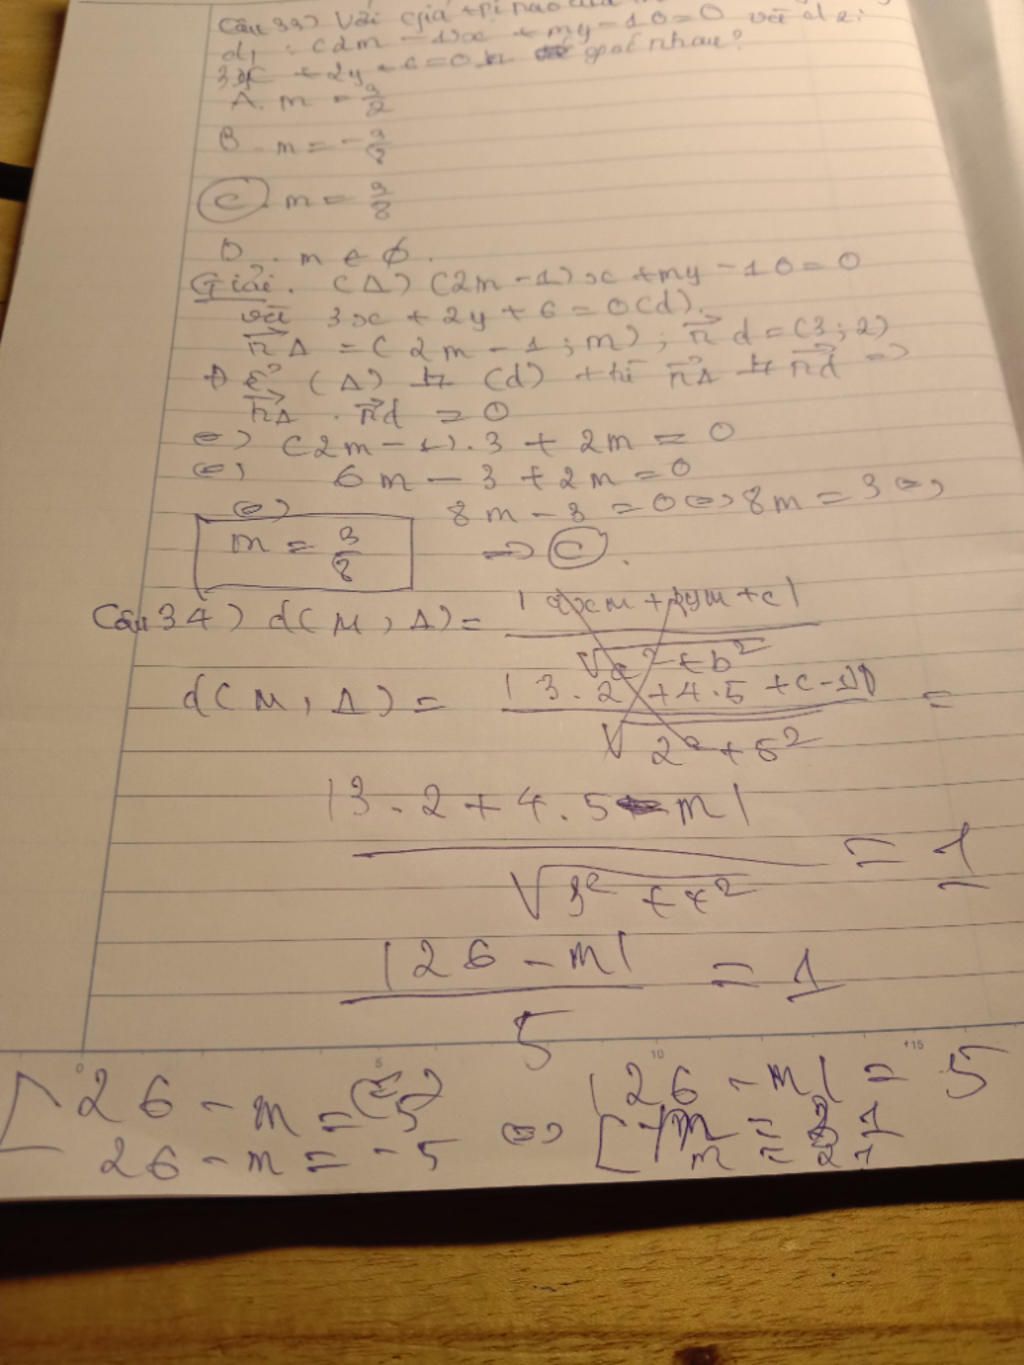 Câu 33) Với giá trị nào của
d1 : (2m - 1)x + my - 10 = 0 và d2:
3x + 2y + 6 = 0 góc nhau?
A. m = 3/2
B. m = -3/8
C. m = 3/8
D. m ∈ ∅.
Giải. (Δ) (2m - 1)x + my - 10 = 0
với 3x + 2y + 6 = 0 (d).
n⃗Δ = (2m - 1; m), n⃗d = (3; 2)
(Δ) (d) thì n⃗Δ n⃗d =>
n⃗Δ . n⃗d = 0
<=> (2m - 1).3 + 2m = 0
<=> 6m - 3 + 2m = 0
<=> 8m - 3 = 0 <=> 8m = 3 <=>
m = 3/8 => C.
Câu 34) d(M, Δ) = |axM + byM + c| / √(a² + b²)
d(M, Δ) = |3.2 + 4.5 + c - | / √(2² + 5²) =
|3.2 + 4.5 - m| / √(3² + 4²) = 1
|26 - m| / 5 = 1
|26 - m| = 5
[ 26 - m = 5 <=> [ m = 21
26 - m = -5 m = 21